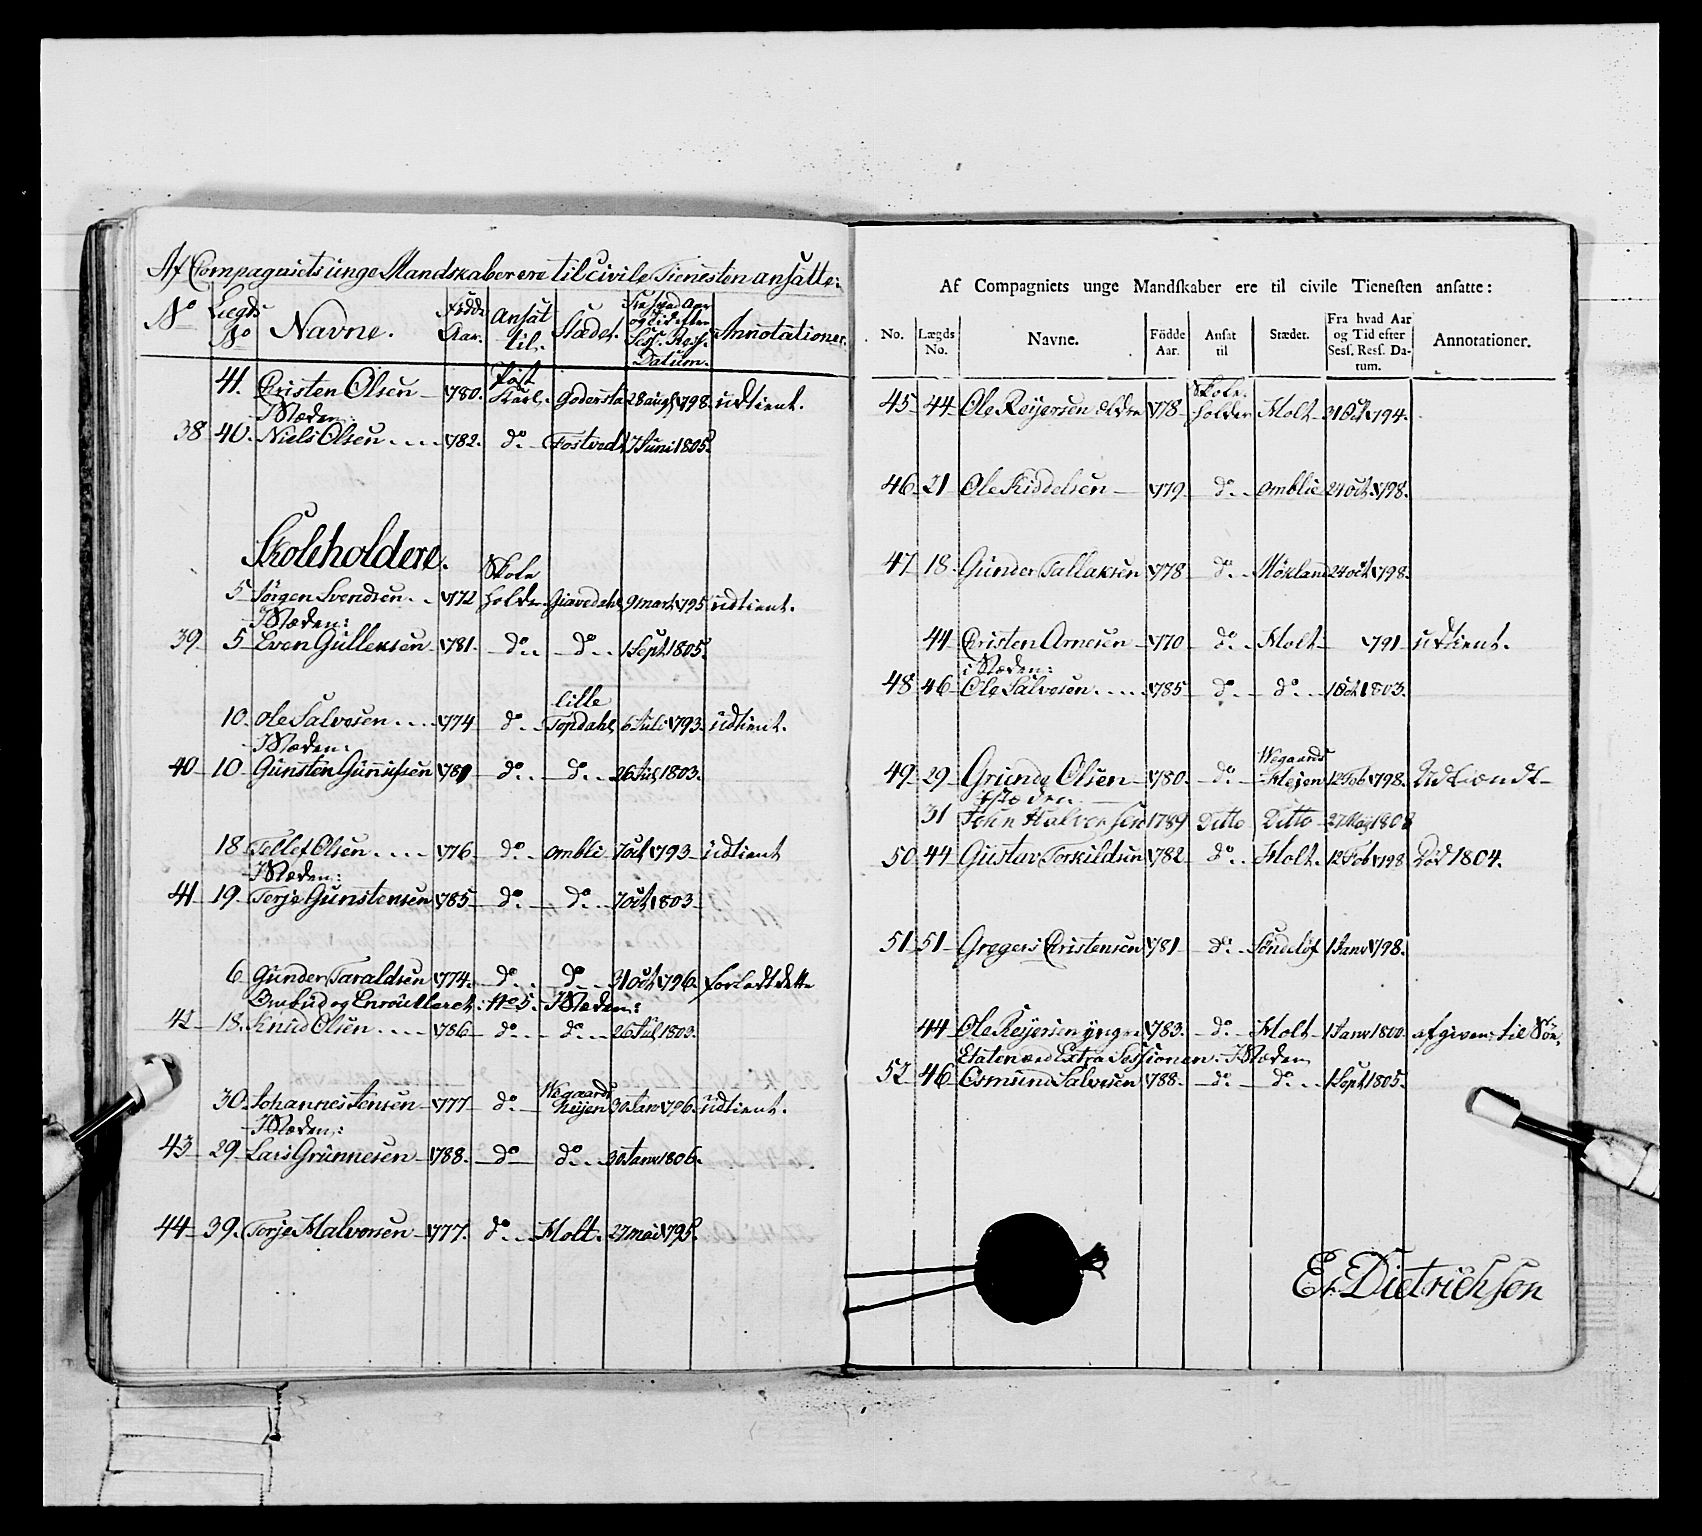 Af Compagniets unge Mandskaber ere til civile Tienesten ansatte:
No Lægds No Navne. Fødde Aar. Ansat til. Stædet. Fra hvad Aar og Tid efter Sess. Ress. Datum. Annotationer.
41. Christen Olsen 1780. Post Karl. Godersta 28 aug 1798. udtient.
I Stæden:
38 40. Niels Olsen 1782. do Fostvedt 7 Juni 1805.
Skoleholdere.
5 Jörgen Svendsen 1772 Skole holder Giavedahl 9 mart 1795 udtient.
I Stæden:
39 5 Even Gullexsen 1781. do do 1 Sept 1805.
10. Ole Salvesen 1774 do lille Topdahl 6 Juli 1793. udtient.
I Stæden:
40 10 Gunsten Gunufsen 1781 do do 26 Jul 1803.
18 Tellef Olsen 1776 do ombli 7 Oct 1793 udtient
I Stæden:
41 19. Terje Gunstensen 1785 do do 7 Oct 1803
6 Gunder Taraldsen 1774. do do 31 Oct 1796. forladt dette
Ombud og Enroulleret No 5. I Stæden:
42 18. Knud Olsen 1786 do do 26 Jul 1803.
30. Johannes Jensen 1777 do Wegaards heyen 30 Janv 1796. udtient.
I Stæden:
43 29 Lars Grunnesen 1788. do do 30 Janv 1806.
44 39. Terje Halvorsen 1777. do Holt. 27 mai 1795.
Af Compagniets unge Mandſkaber ere til civile Tieneſten anſatte:
No. Lægds No. Navne. Födde Aar. Anſat til Stædet. Fra hvad Aar og Tid efter Sesſ. Resſ. Datum. Annotationer.
45 44 Ole Reyersen ældre 1778 Skoleholder Holt 31 Oct 1794.
46 21 Ole Kiddelsen 1779 do omblie 24 oct 1798.
47 18 Gunder Tallaksen 1778 do Möxland 24 oct 1798.
44 Christen Arnesen 1770 do Holt 1791 udtient.
i Stæden:
48 46 Ole Salvesen 1785 do do 1 Oct 1803.
49 29 Grunde Olsen 1780. do Wegaards Heyen 12 Feb 1798. Udsændt
I Stæden
31 John Halversen 1789 Ditto Ditto 27 May 1808
50 44 Gustav Torkildsen 1782 do Holt 12 Feb 1798 Död 1804.
51 51 Gregers Christensen 1781 do Söndeløf 1 Janv 1798.
44 Ole Reyersen yngre 1783. do Holt 1 Janv 1800. afgiven til Söe,
Etaten ved Extra Sessionen. I Stæden
52 46 Osmund Salvesen 1788. do do 1 Sept 1805.
Er. Dietrichson